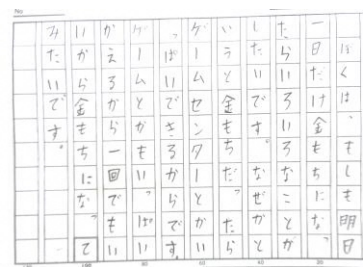 ぼくは、もしも明日
一日だけ金もちになっ
たらいろいろなことが
したいです。なぜかと
いうと金もちだったら
ゲームセンタとかい
っぱいできるからです。
かえるから一回でもい
いから金もちになって
みたいです。